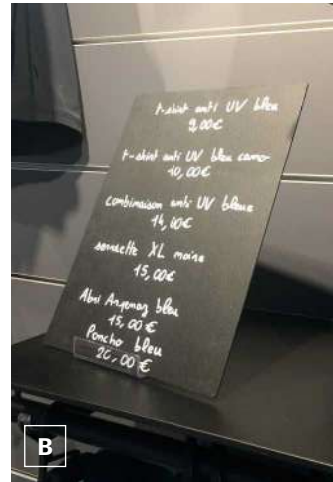 t-shirt anti UV bleu
9,00€
t-shirt anti UV bleu camo
10,00€
combinaison anti UV bleue
14,00€
serviette XL
15,00€
Abri bleu
15,00€
Poncho bleu
20,00€
B